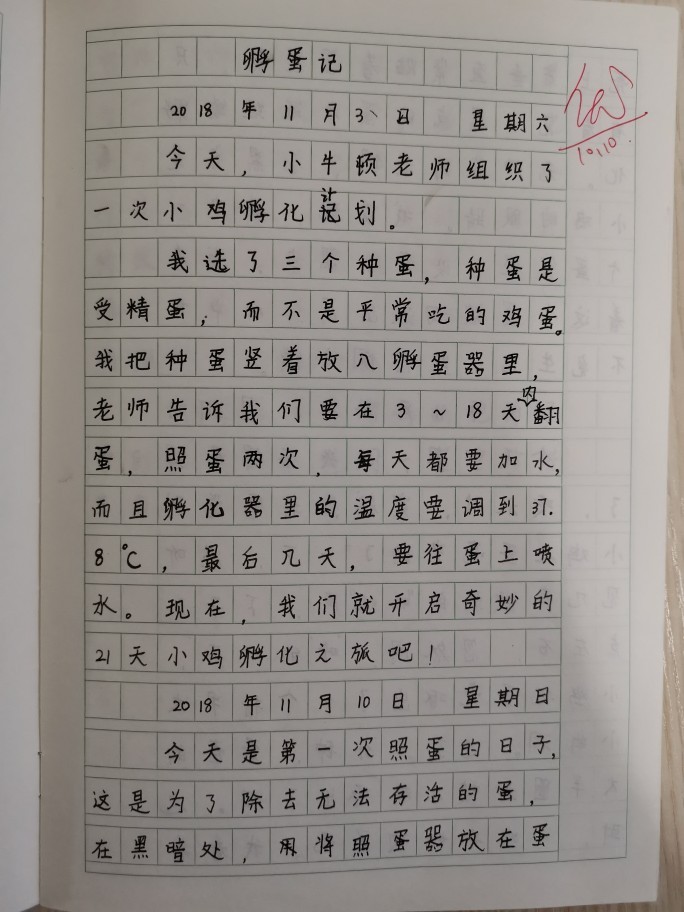 孵蛋记
2018年11月3日 星期六
今天，小牛顿老师组织了
一次小鸡孵化计划。
我选了三个种蛋，种蛋是
受精蛋，而不是平常吃的鸡蛋。
我把种蛋竖着放入孵蛋器里，
老师告诉我们要在3~18天内翻
蛋，照蛋两次，每天都要加水，
而且孵化器里的温度要调到37.
8℃，最后几天，要往蛋上喷
水。现在，我们就开启奇妙的
21天小鸡孵化之旅吧！
2018年11月10日 星期日
今天是第一次照蛋的日子，
这是为了除去无法存活的蛋，
在黑暗处，用将照蛋器放在蛋
10,10.